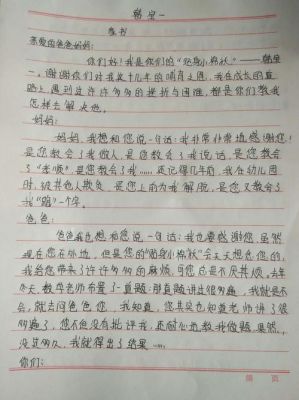 韩宝一
家书
亲爱的爸爸妈妈:
你们好!我是你们的“贴身小棉袄”——韩宝
一。谢谢你们对我这十几年的哺育之恩,我在成长的道
路上遇到过许许多多的挫折与困难,都是你们教我
怎样去解决他。
妈妈:
妈妈,我想和您说一句话:我非常非常感谢您!
是您教会了我做人,是您教会了我说话,是您教会
了“孝顺”是您教会了我……还记得几年前,我在幼儿园
时,被其他人欺负,是您上前为我解脱,是您又教会了
我“路”一个字。
爸爸:
爸爸我也想和您说一句话:我也要感谢您,虽然
现在您在外边,但是您的“贴身小棉袄”会天天想念您的,
我给您带来了许许多多的麻烦,可您还是不厌其烦,去年
冬天,数学老师布置了一道题,那道题讲过很多遍,我就是不
会,就去问爸爸您,我知道,您其实也知道老师讲了很
多遍了,您不但没有批评我,还耐心地教我做题,果然,
没过多久,我就得出了结果……
你们:
第 页